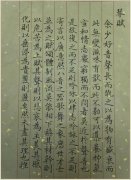 琴賦
余少好音聲長而翫之以為物有盛衰而
此無變滋味有猒而此不勌可以導養神氣
宣和情志處窮獨而不悶者莫近於音聲也
是故復之而不足則吟詠以肆志吟詠之不足則
寄言以廣意然八音之器歌舞之象歷世才士
並為之賦頌其體制風流莫不相襲稱其才幹則
以危苦為上賦其聲音則以悲哀為主美其感
化則以垂涕為貴麗則麗矣然未盡其理也